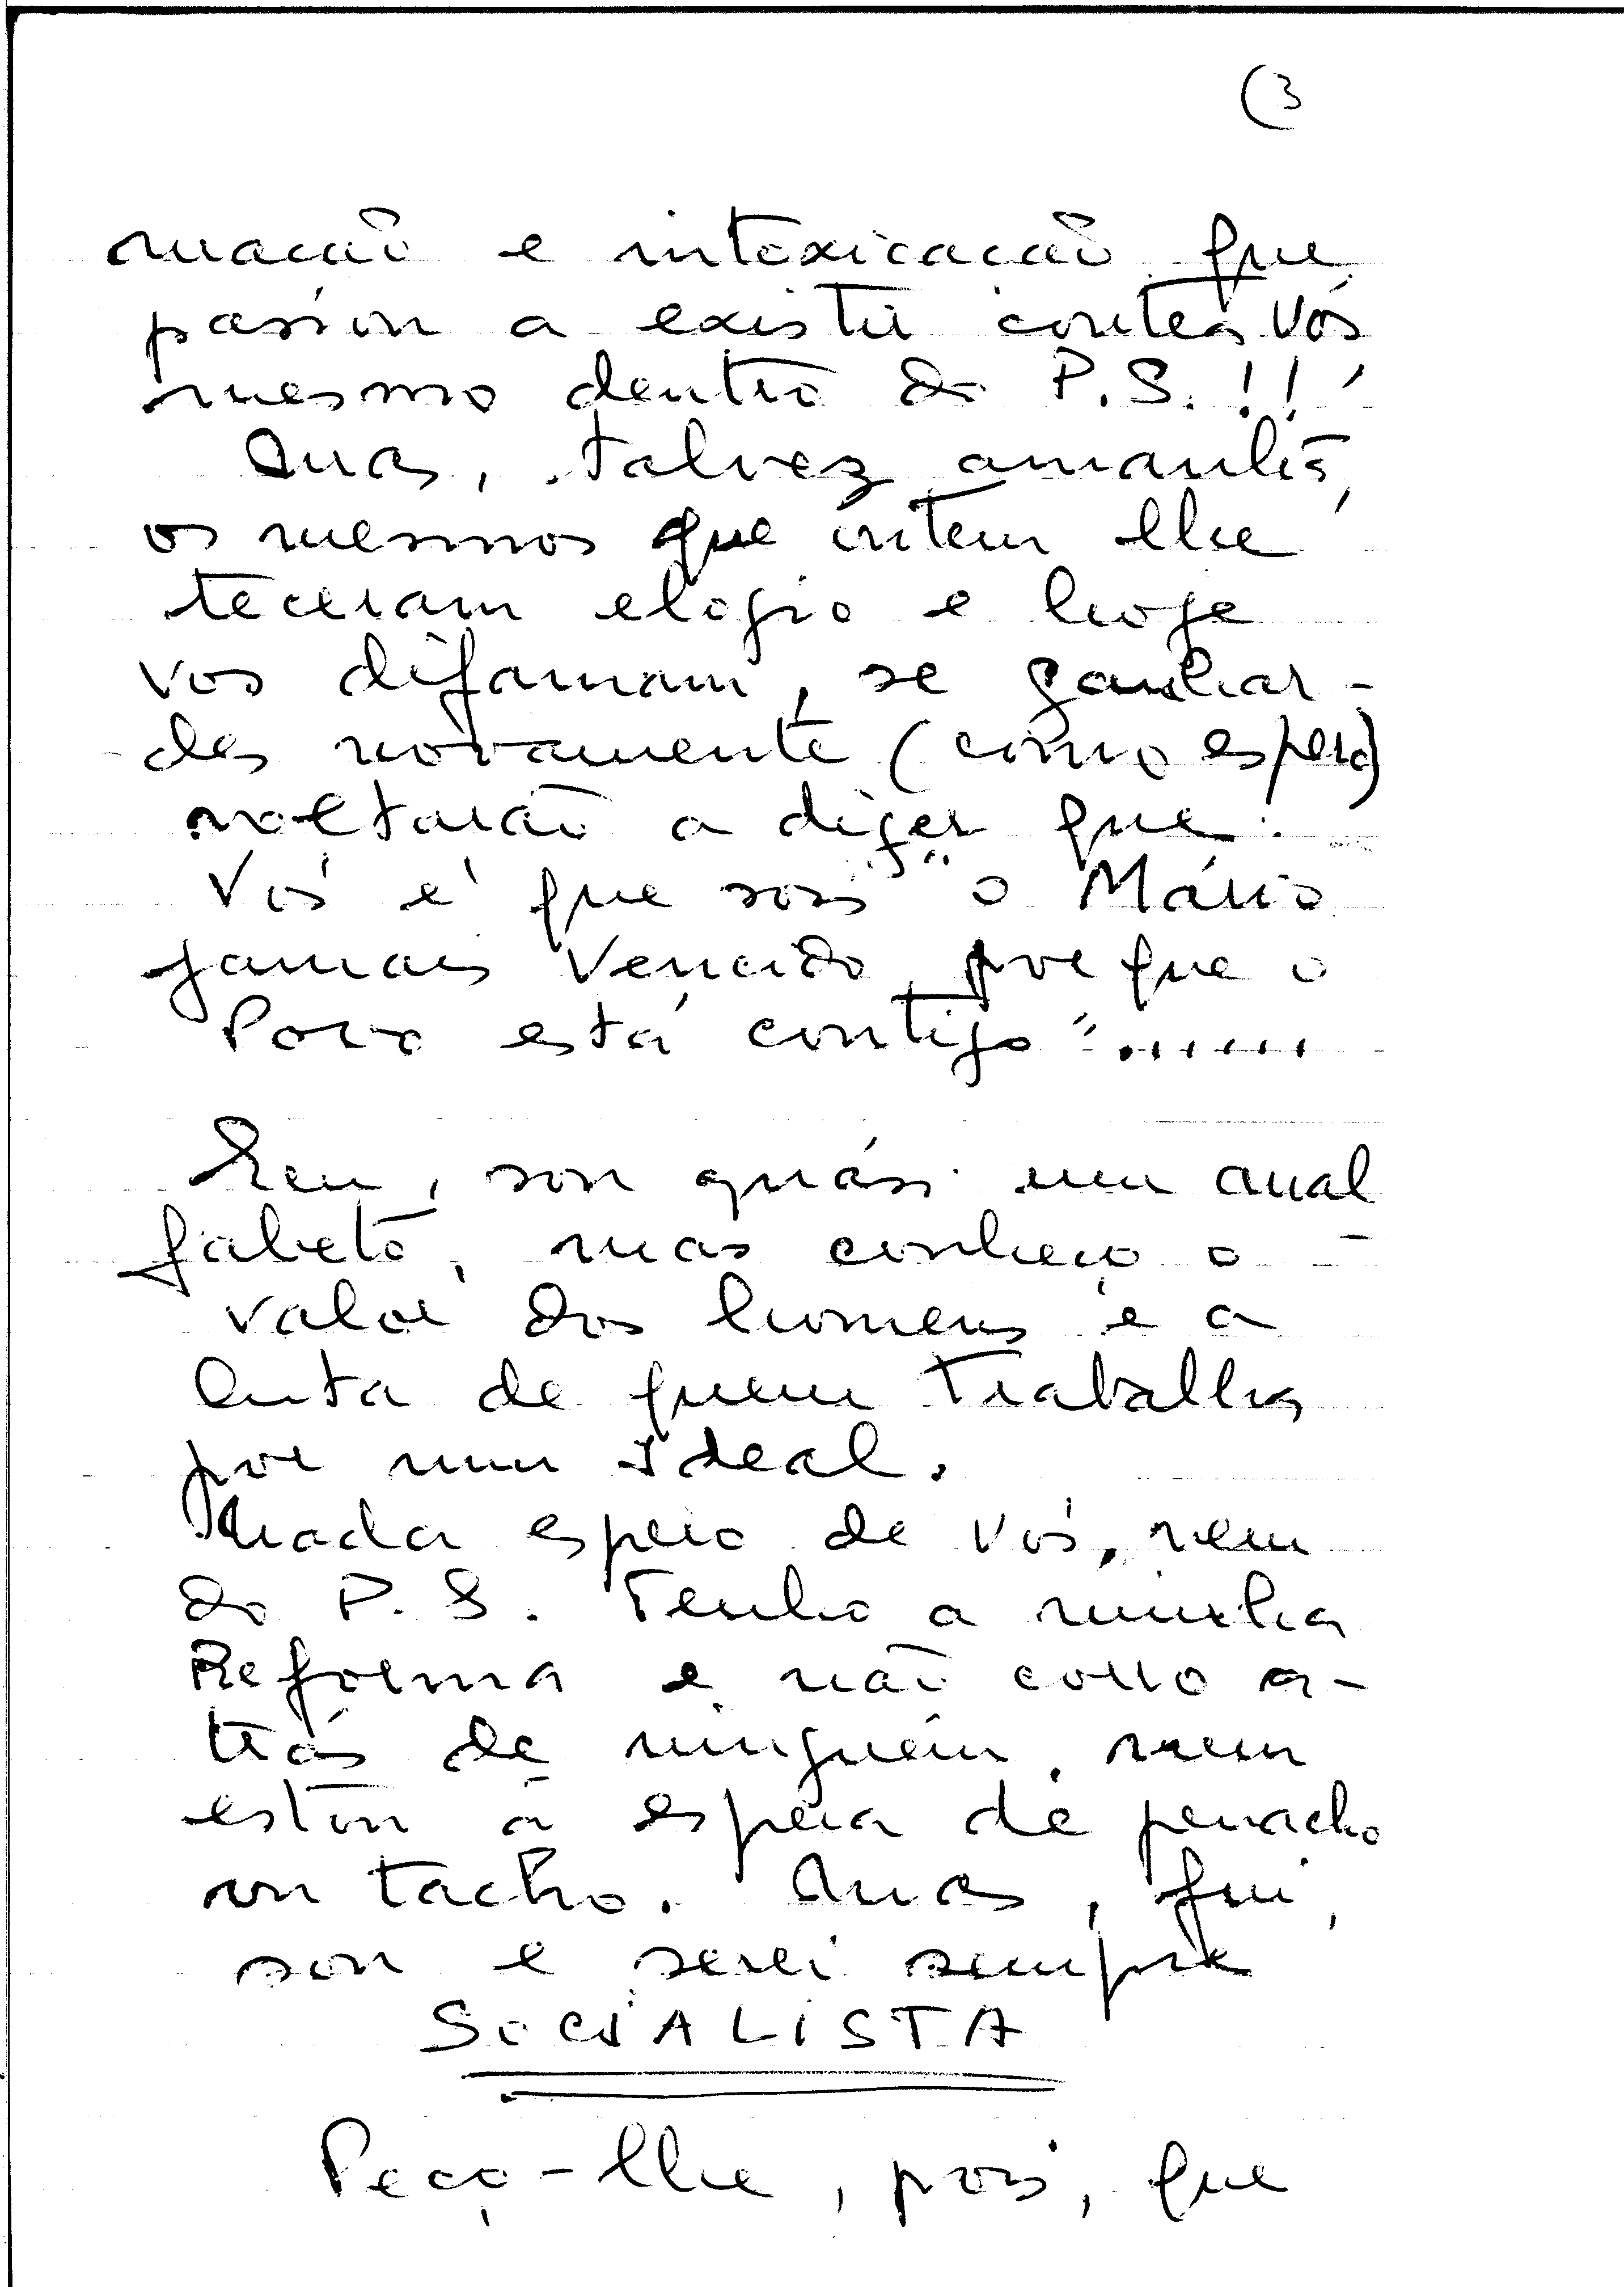 (3
mação e intoxicação que
passou a existir contra Vós
mesmo dentro do P.S.!!!
Mas, talvez amanhã,
os mesmos que ontem lhe
teceram elogio e hoje
vos difamam, se ganhar-
des novamente (como espero)
voltarão a dizer que:
Vós é que sois "o Mário
jamais Vencido, porque o
Povo está contigo".......
Eu, sou quási um anal
fabeto, mas conheço o -
valor dos homens e a
luta de quem Trabalha
por um Ideal.
Nada espero de Vós, nem
do P.S. Tenho a minha
Reforma e não corro a-
trás de ninguém, nem
estou à espera de penacho
ou tacho. Mas, fui,
sou e serei sempre
SOCIALISTA
Peço-lhe, pois, que